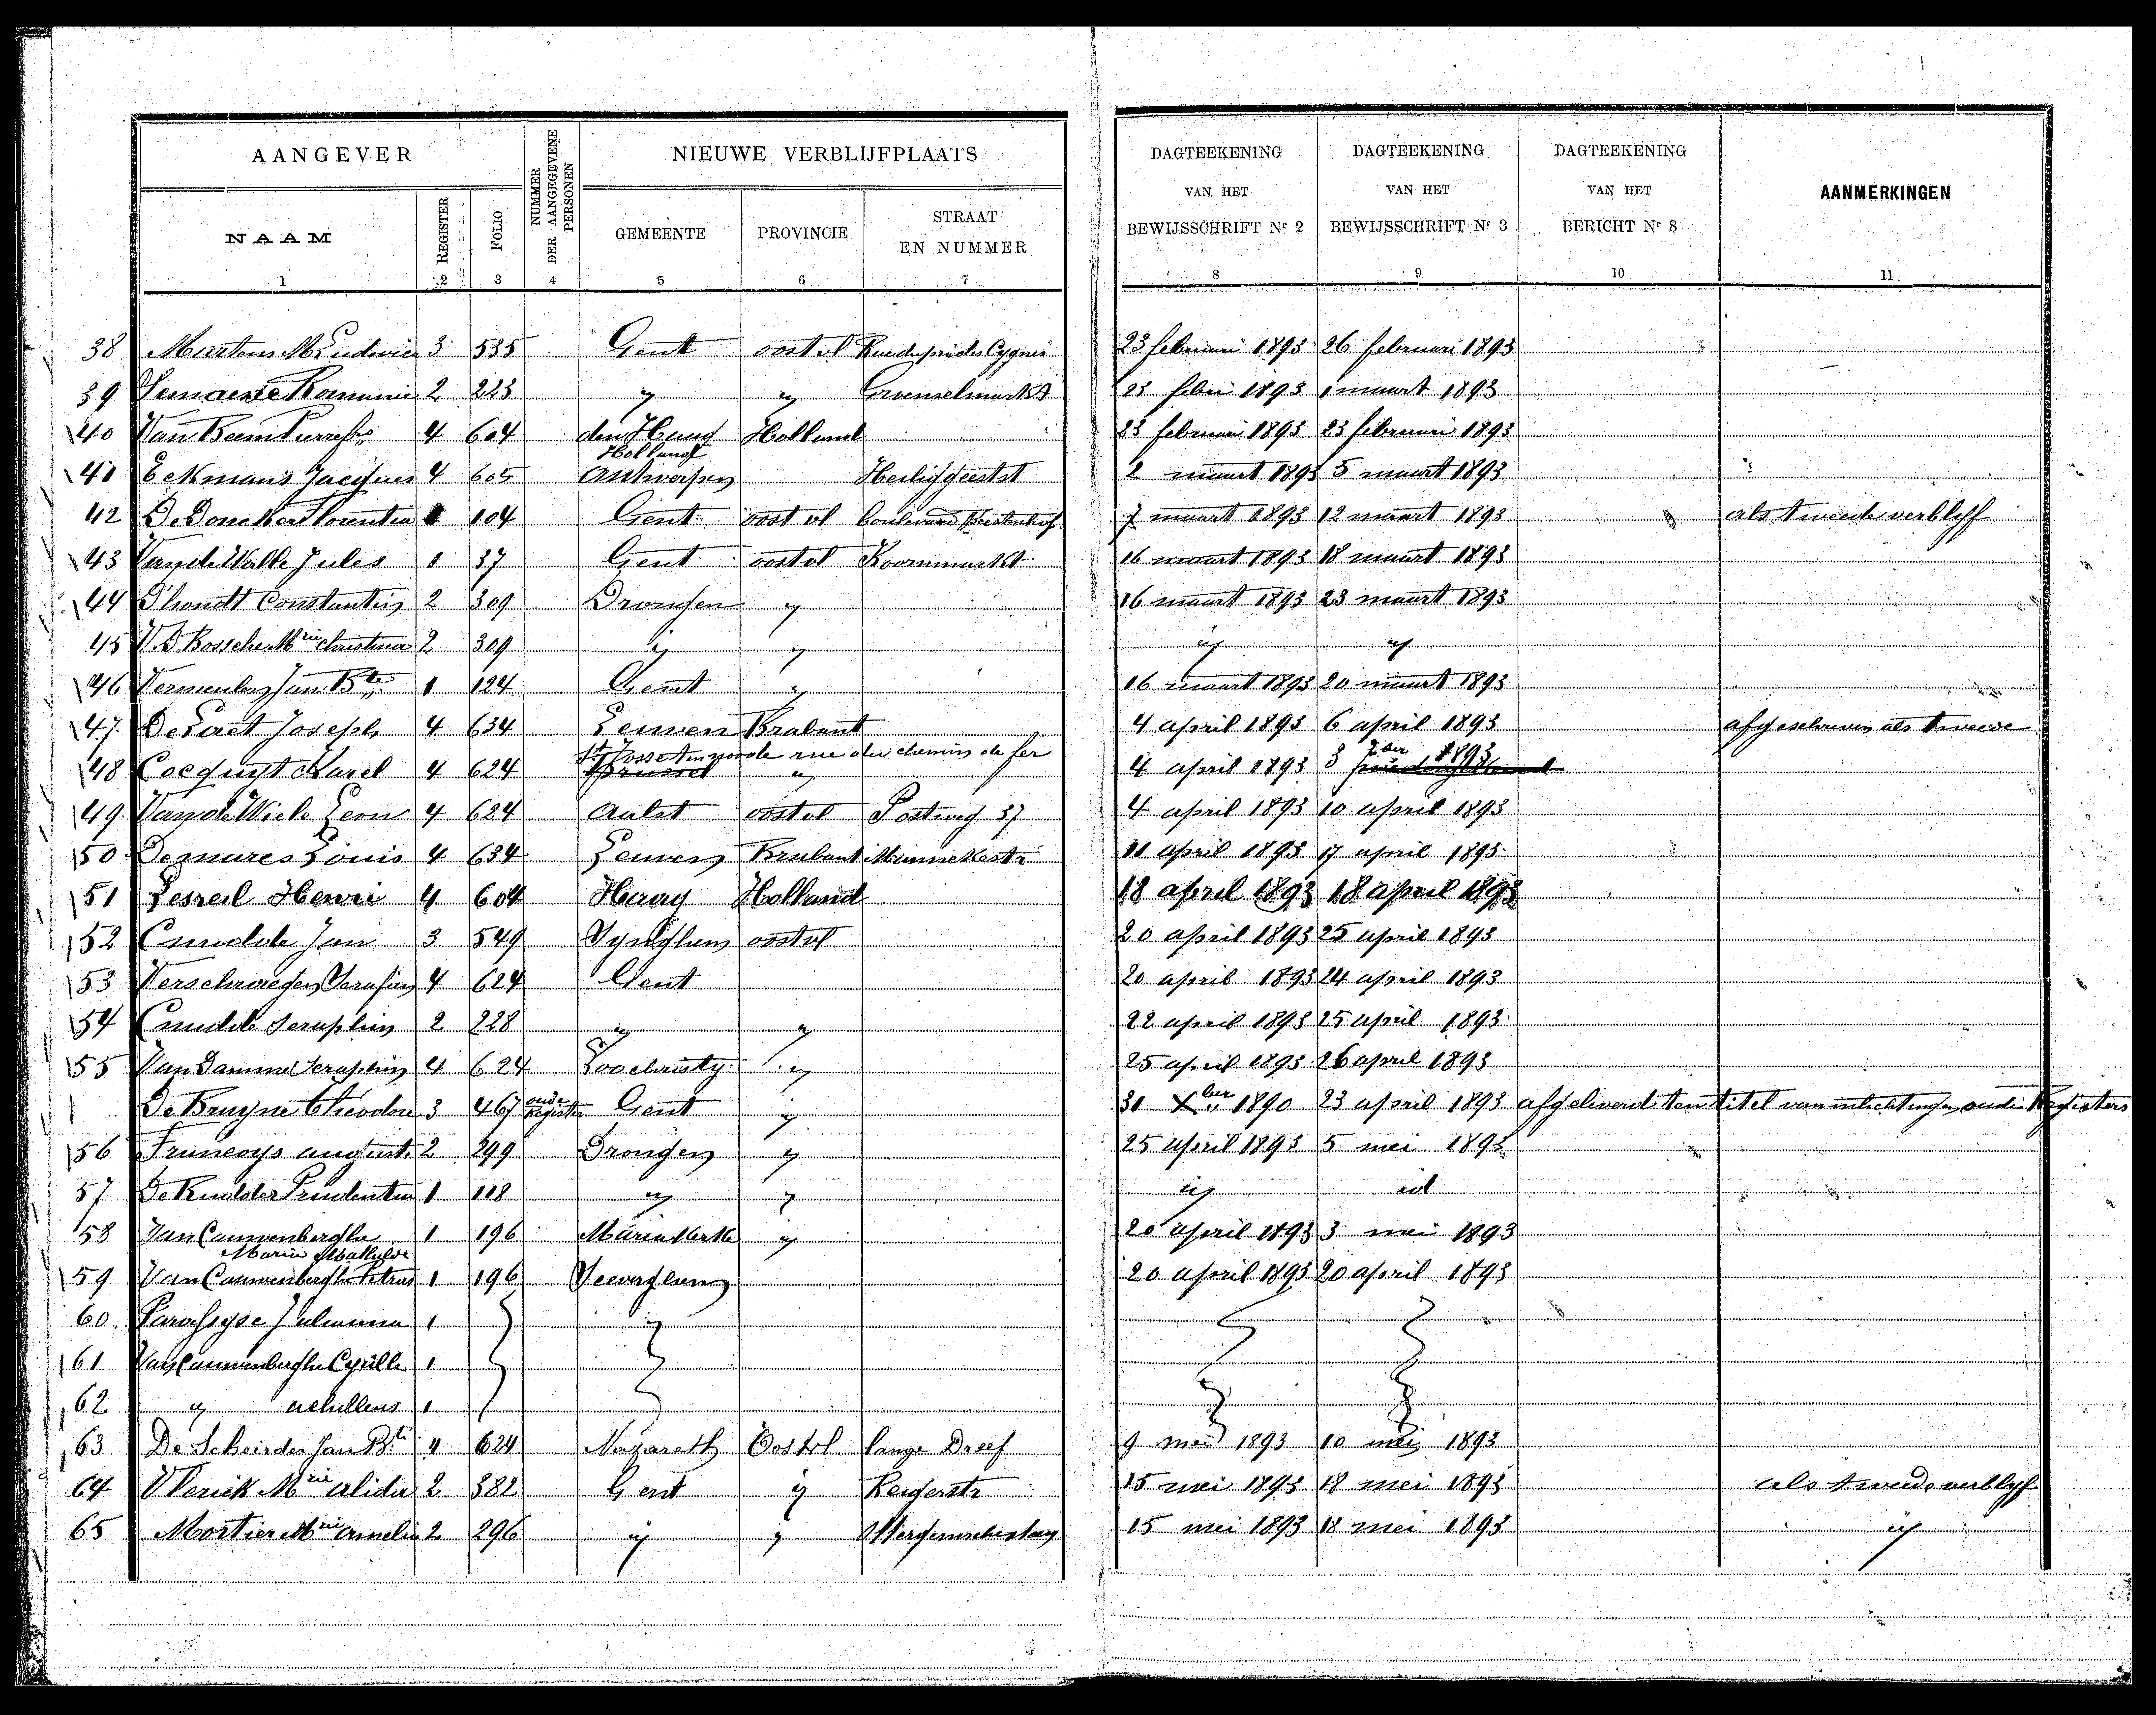 AANGEVER
NUMMER DER AANGEGEVENE PERSONEN
NIEUWE VERBLIJFPLAATS
DAGTEEKENING VAN HET BEWIJSSCHRIFT Nr 2
DAGTEEKENING VAN HET BEWIJSSCHRIFT Nr 3
DAGTEEKENING VAN HET BERICHT Nr 8
AANMERKINGEN
NAAM REGISTER FOLIO GEMEENTE PROVINCIE STRAAT EN NUMMER
1 2 3 4 5 6 7 8 9 10 11
38 Martens 3 535 Gent oostvl 23 februari 1893 26 februari 1893
39 2 223 " " Groenselmarkt 23 febri 1893 1 maart 1893
40 Van 4 604 den Haag Holland 23 februari 1893 23 februari 1893
Holland
41 Eekmans Jacques 4 605 Antwerpen Heiliggeestst 2 maart 1893 5 maart 1893
42 De Doncker 104 Gent oost vl boulevard 7 maart 1893 12 maart 1893 als tweede verblijf
43 Van de Walle Jules 1 37 Gent oostvl Koornmarkt 16 maart 1893 18 maart 1893
44 D'hondt Constantin 2 309 Drongen " 16 maart 1893 23 maart 1893
45 V. D. Bossche Mrie Christina 2 309 " " " "
46 Vermeulen Jan Bte 1 124 Gent " 16 maart 1893 20 maart 1893
47. Joseph 4 634 Leuven Brabant 4 april 1893 6 april 1893 afgeschreven als tweede
St Josse ten noode rue du chemin de fer
48 Cocquyt Karel 4 624 Brussel " 4 april 1893 3 1893
49 Van de Wiele Leon 4 624 Aalst oostvl Postweg 37 4 april 1893 10 april 1893
50 Demares Louis 4 634 Leuven Brabant 11 april 1893 17 april 1893
51 Henri 4 604 Haag Holland 18 april 1893 18 april 1893
52 Cnudde Jan 3 549 oostvl 20 april 1893 25 april 1893
53 Verschraegen Serafin 4 624 Gent 20 april 1893 24 april 1893
54 Cnudde Seraphin 2 228 " " 22 april 1893 25 april 1893
55 Van Damme Seraphin 4 624 Loochristy " 25 april 1893 26 april 1893
De Bruyne Theodore 3 467 oude register Gent " 31 Xber 1890 23 april 1893 afgeleverd ten titel van inlichtingen oude Registers
56 Francoys august. 2 299 Drongen " 25 april 1893 5 mei 1893
57 De Rudder Prudentia 1 118 " " " id
58 Van Cauwenberghe 1 196 Mariakerke " 20 april 1893 3 mei 1893
Marie Mathilde
59 Van Cauwenberghe Petrus 1 196 Seeverghem 20 april 1893 20 april 1893
60. 1
61 Van Cauwenberghe Cyrille 1
62 " achilleus 1
63 De Scheirder Jan Bte 4 624 Nazareth Oostvl lange Dreef 9 mei 1893 10 mei 1893
64 Vlerick Mrie alida 2 382 Gent " Keizerstr 15 mei 1893 18 mei 1893 als tweede verblijf
65 Mortier Mrie amelie 2 296 " " 15 mei 1893 18 mei 1893 "